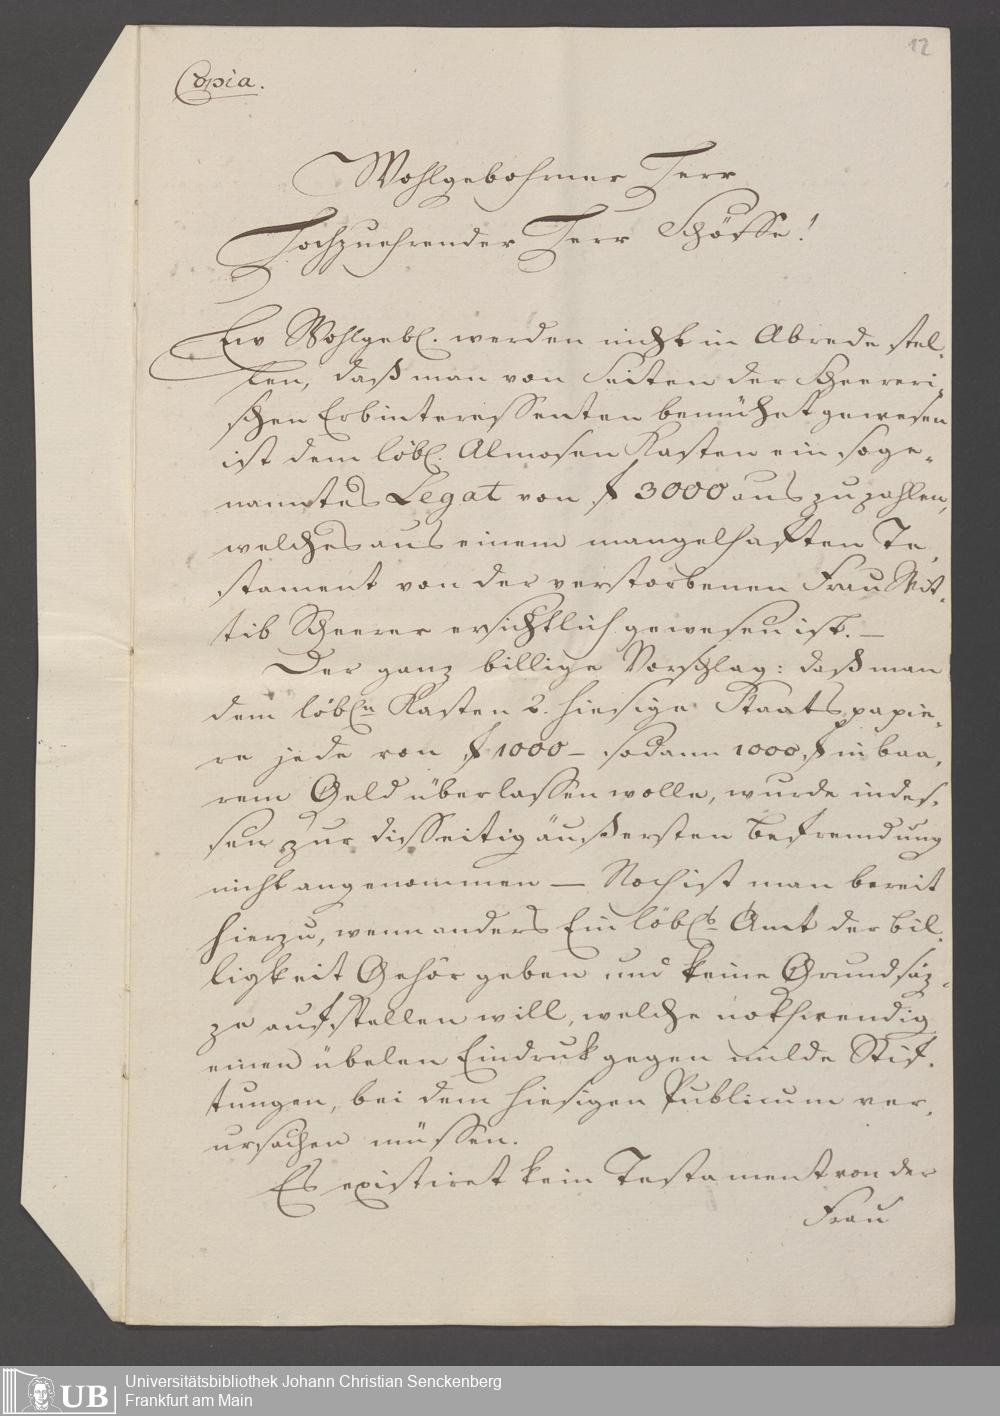 12
Copia.
Wohlgebohrner Herr
Hochzuehrender Herr Schöffe!
Ew Wohlgebl. werden nicht in Abrede stel-
len, daß man von Seiten der Scheereri-
schen Erbinteressenten bemühet gewesen
ist dem löbl. Almosen Kasten ein soge-
nanntes Legat von f 3000 aus zu zahlen,
welches aus einem mangelhaften Te-
stament von der verstorbenen Frau Wit-
tib Scheerer ersichtlich gewesen ist. —
Der ganz billige Vorschlag: daß man
dem löbln Kasten 2. hiesige Staatspapie-
re jede von f 1000 – sodann 1000 f in baa-
rem Geld überlassen wolle, wurde indes-
sen zur disseitig äußersten Befremdung
nicht angenommen — Noch ist man bereit
hierzu, wenn anders Ein löblb Amt der bil-
ligkeit Gehör geben und keine Grundsäz-
ze aufstellen will, welche nothwendig
einen übelen Eindruk gegen milde Stif-
tungen, bei dem hiesigen Publicum ver-
ursachen müssen.
Es existiret kein Testament von der
Frau
UB
Universitätsbibliothek Johann Christian Senckenberg
Frankfurt am Main